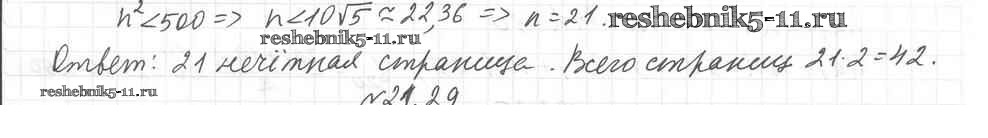 n² < 500 => n < 10√5 ≈ 22,36 => n = 21. reshebnik5-11.ru
reshebnik5-11.ru
Ответ: 21 нечётная страница. Всего страниц 21·2=42.
reshebnik5-11.ru
№21.29